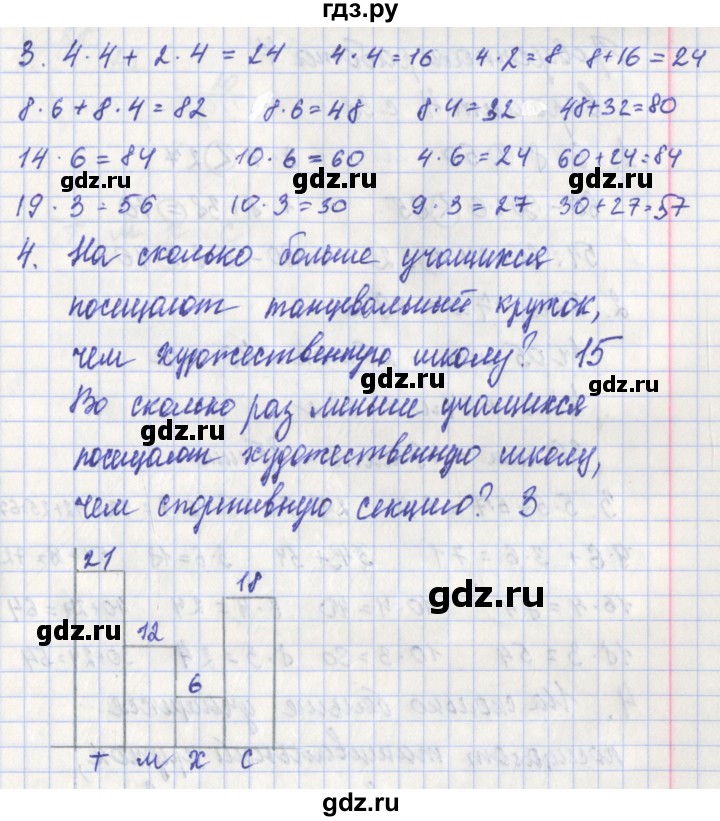 гдз.ру
3. 4·4 + 2·4 = 24 4·4=16 4·2=8 8+16=24
8·6+8·4=82 8·6=48 8·4=32 48+32=80
14·6=84 10·6=60 4·6=24 60+24=84
gdz.ru gdz.ru gdz.ru
19·3=56 10·3=30 9·3=27 30+27=57
4. На сколько больше учащихся
посещают танцевальный кружок,
чем художественную школу? 15
gdz.ru
Во сколько раз меньше учащихся
gdz.ru
посещают художественную школу,
чем спортивную секцию? 3
21
18
gdz.ru
12
gdz.ru
6
Т М Х С
gdz.ru gdz.ru gdz.ru